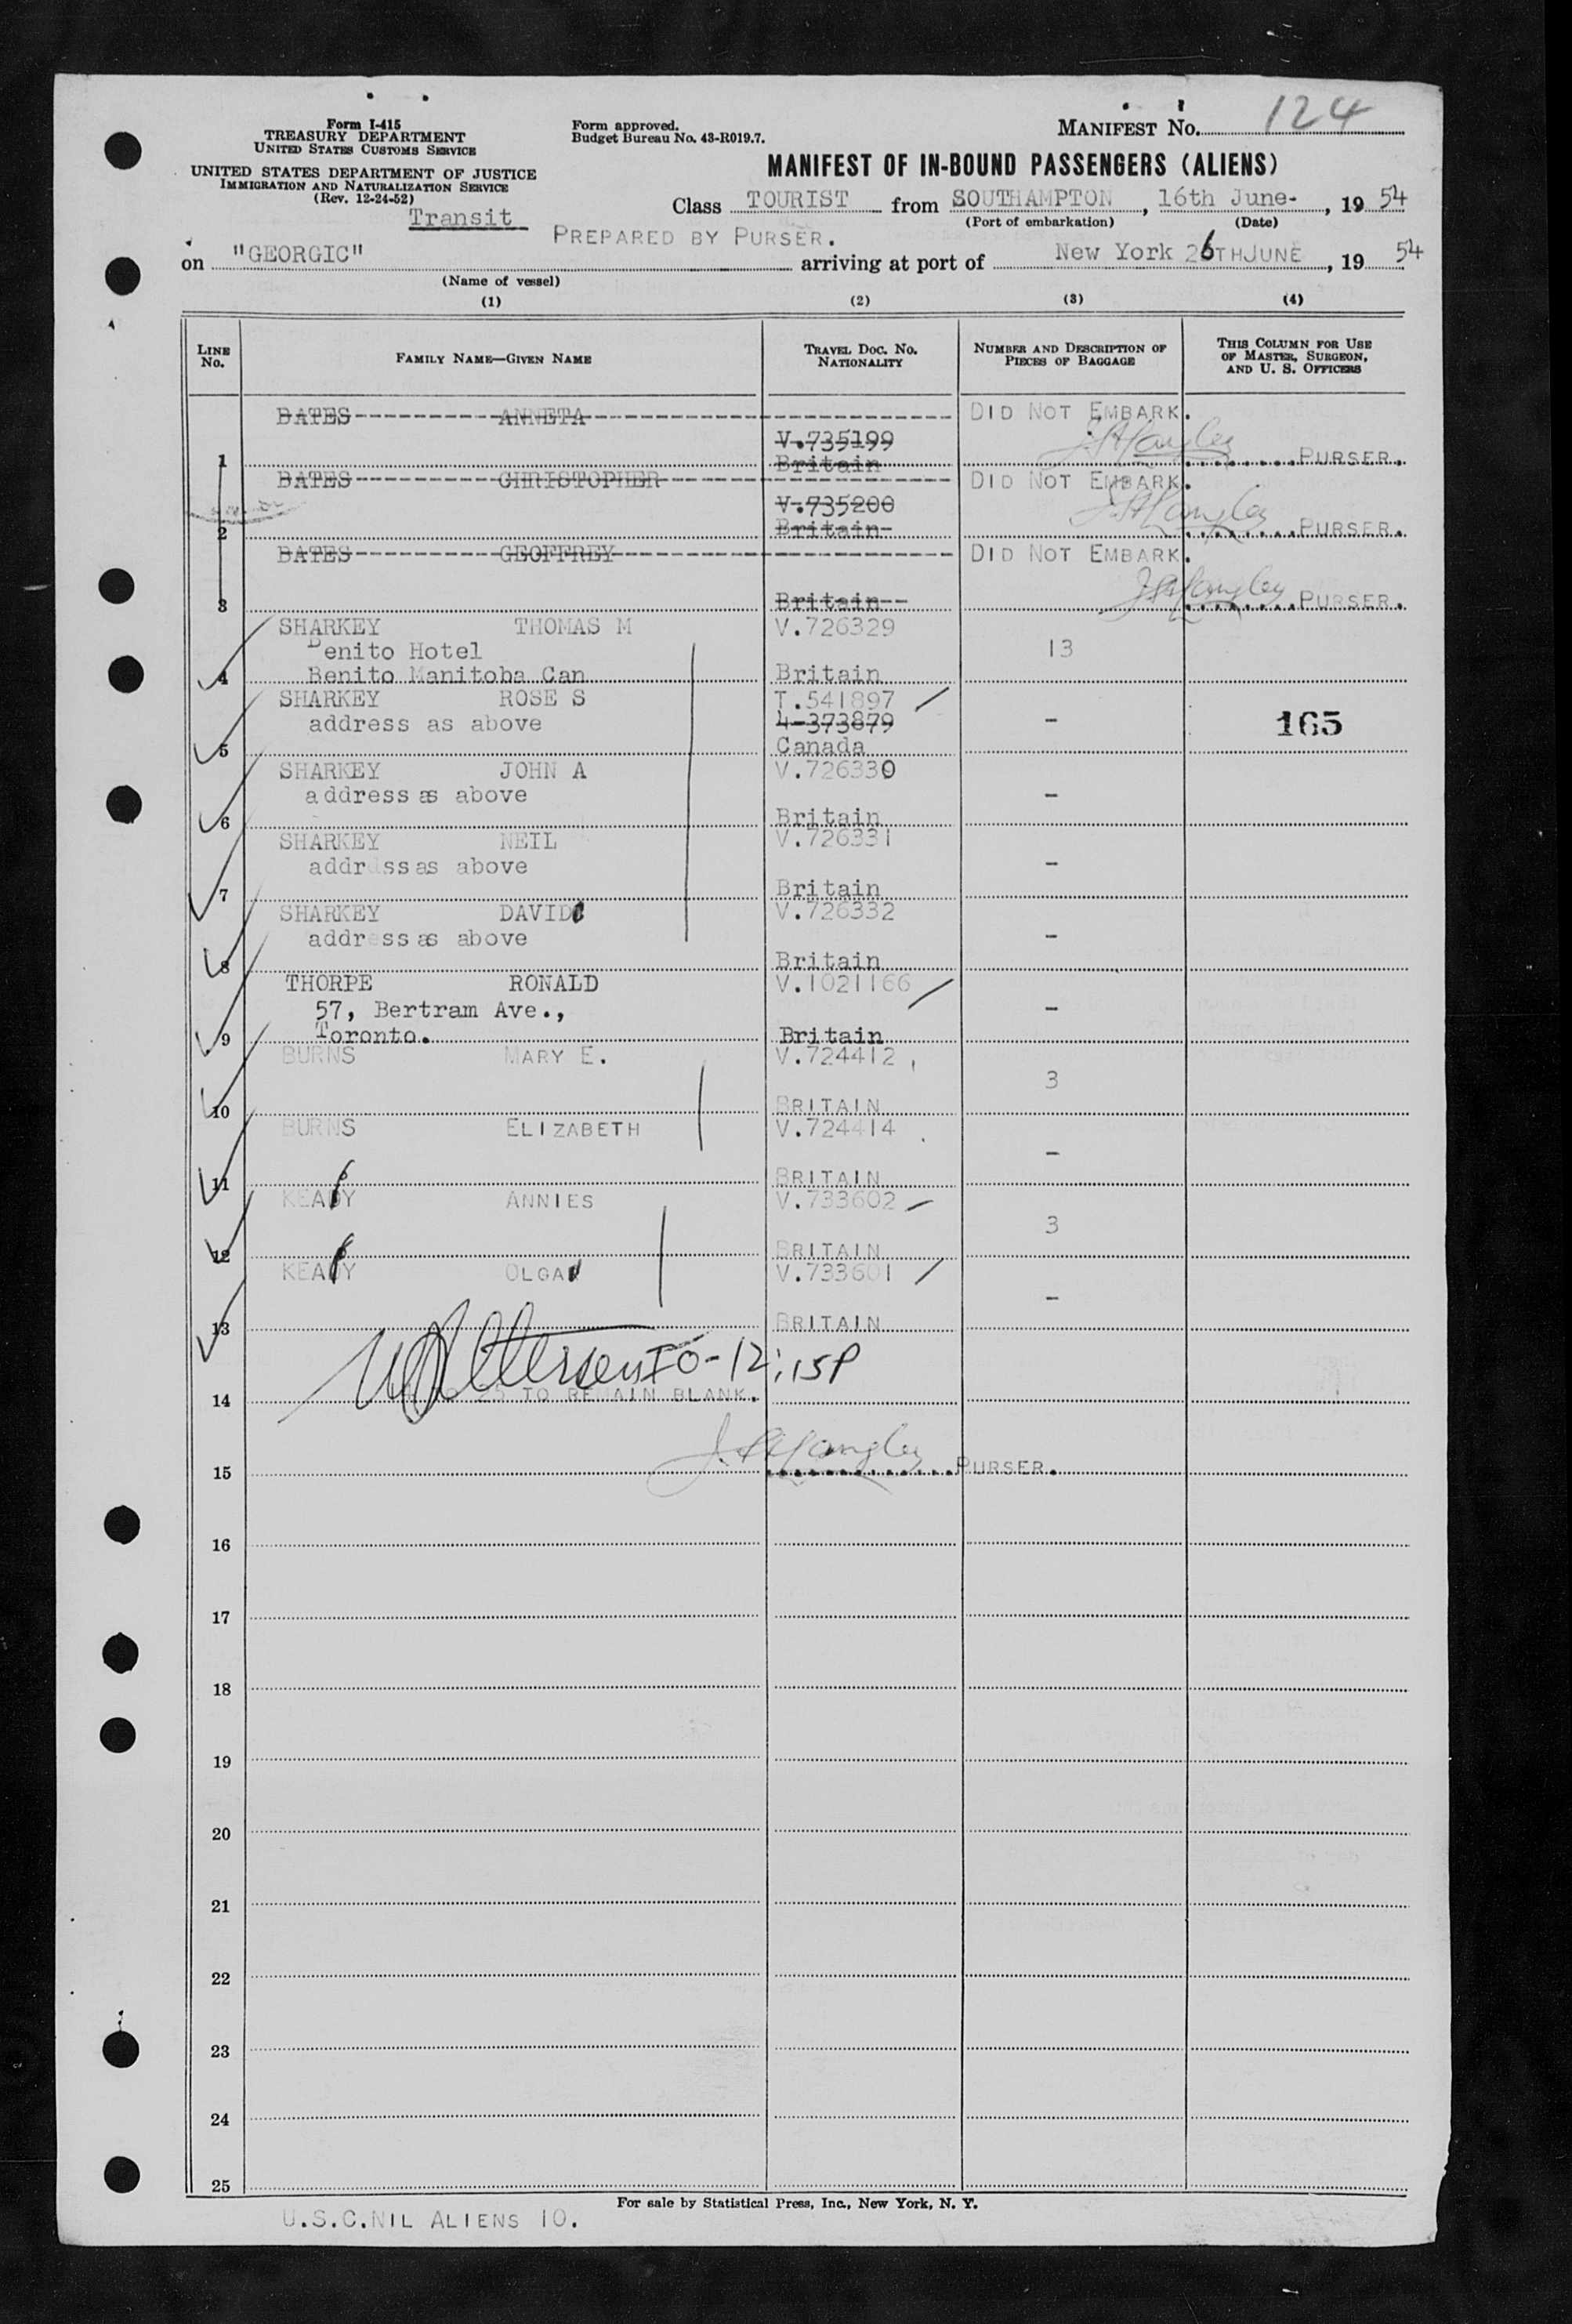 Form I-415
TREASURY DEPARTMENT
UNITED STATES CUSTOMS SERVICE
UNITED STATES DEPARTMENT OF JUSTICE
IMMIGRATION AND NATURALIZATION SERVICE
(Rev. 12-24-52)
Form approved.
Budget Bureau No. 43-R019.7.
MANIFEST No. 124
MANIFEST OF IN-BOUND PASSENGERS (ALIENS)
Class TOURIST from SOUTHAMPTON, 16th June-, 19 54
(Port of embarkation) (Date)
Transit
PREPARED BY PURSER.
on "GEORGIC" arriving at port of New York 26TH JUNE, 19 54
(Name of vessel)
(1) (2) (3) (4)
LINE No. FAMILY NAME—GIVEN NAME TRAVEL DOC. NO. NATIONALITY NUMBER AND DESCRIPTION OF PIECES OF BAGGAGE THIS COLUMN FOR USE OF MASTER, SURGEON, AND U. S. OFFICERS
BATES ANNETA DID NOT EMBARK.
V.735199
1 Britain PURSER.
BATES CHRISTOPHER DID NOT EMBARK.
V.735200
2 Britain- PURSER.
BATES GEOFFREY DID NOT EMBARK.
3 Britain-- PURSER.
SHARKEY THOMAS M V.726329
Benito Hotel 13
4 Benito Manitoba Can Britain
SHARKEY ROSE S T.541897
address as above 4-373879 - 165
5 Canada
SHARKEY JOHN A V.726330
address as above -
6 Britain
SHARKEY NEIL V.726331
address as above -
7 Britain
SHARKEY DAVID V.726332
address as above -
8 Britain
THORPE RONALD V.1021166
57, Bertram Ave., -
9 Toronto. Britain
BURNS MARY E. V.724412
3
10 BRITAIN
BURNS ELIZABETH V.724414
-
11 BRITAIN
KEADY ANNIES V.733602
3
12 BRITAIN
KEADY OLGA V.733601
-
13 BRITAIN
10-12:15P
14 25 TO REMAIN BLANK.
15 PURSER.
16
17
18
19
20
21
22
23
24
25
For sale by Statistical Press, Inc., New York, N. Y.
U.S.C. NIL ALIENS 10.